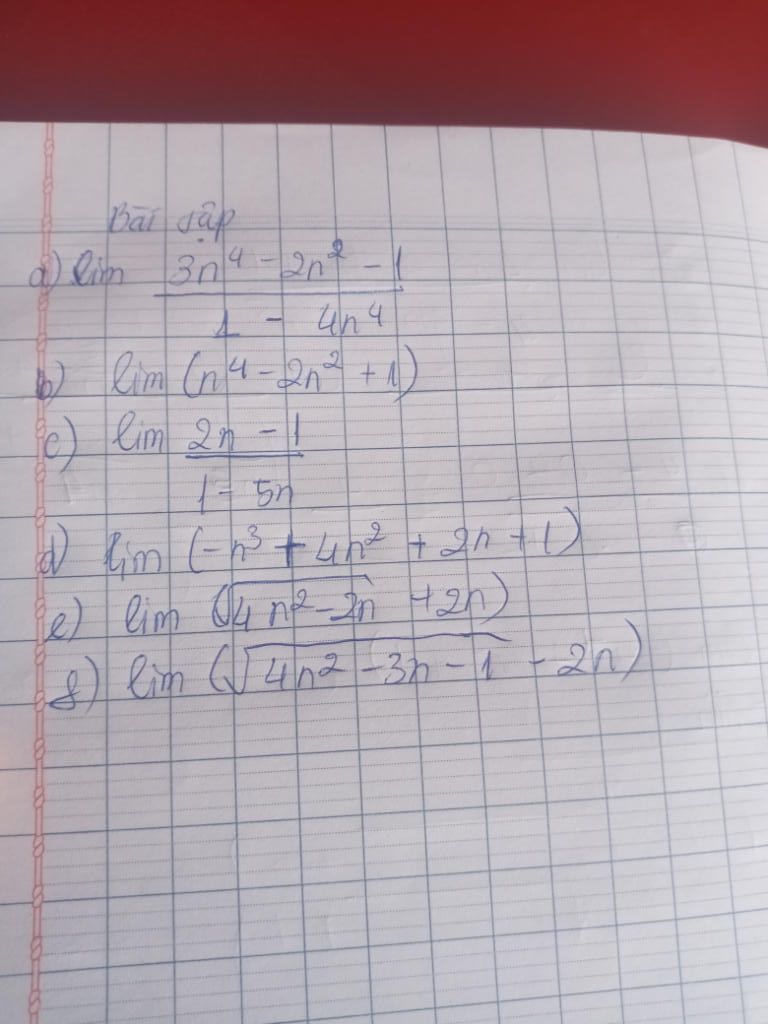 Bài tập
a) lim 3n⁴ - 2n² - 1
1 - 4n⁴
b) lim (n⁴ - 2n² + 1)
c) lim 2n - 1
1 - 5n
d) lim (-n³ + 4n² + 2n + 1)
e) lim (√4n² - 2n + 2n)
f) lim (√4n² - 3n - 1 - 2n)